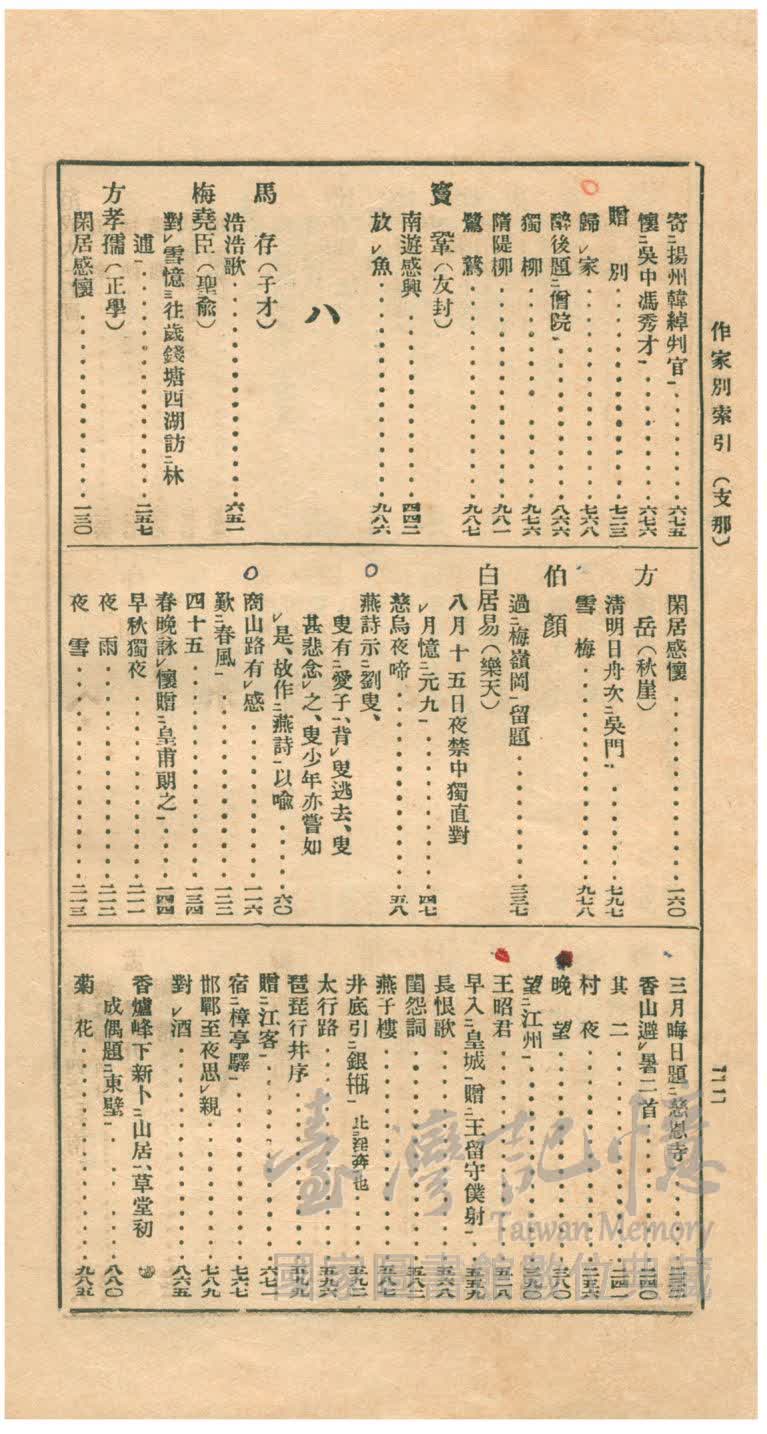 作家別索引 (支那)
寄揚州韓綽判官 六七五
懷吳中馮秀才 六七六
贈別 七二三
歸家 七六八
醉後題僧院 八六六
獨柳 九七六
隋隄柳 九八一
鷺鷥 九八七
竇鞏(友封)
南遊感興 四四二
放魚 九八六
ハ
馬存(子才)
浩浩歌 六五一
梅堯臣(聖兪)
對雪憶往歲錢塘西湖訪林
逋 二五七
方孝孺(正學)
閑居感懷 一三〇
閑居感懷 一六〇
方岳(秋崖)
淸明日舟次吳門 七九七
雪梅 九七八
伯顏
過梅嶺岡留題 三三七
白居易(樂天)
八月十五日夜禁中獨直對
月憶元九 四七
慈烏夜啼 五八
燕詩示劉叟、
叟有愛子、背叟逃去、叟
甚悲念之、叟少年亦嘗如
是、故作燕詩以喩 六〇
商山路有感 一一六
歎春風 一二三
四十五 一三四
春晚詠懷贈皇甫朗之 一四四
早秋獨夜 二一一
夜雨 二一二
夜雪 二一三
三月晦日題慈恩寺
香山避暑二首 二四〇
其二 二四一
村夜 二五六
晚望 二八〇
望江州 二九〇
王昭君 五二八
早入皇城贈王留守僕射 五五九
長恨歌 五六八
閨怨詞 五八二
燕子樓 五八七
井底引銀甁 止淫奔也 五九二
太行路 五九六
琵琶行幷序 五九九
贈江客 六七一
宿樟亭驛 七六七
邯鄲至夜思親 七八九
對酒 八六五
香爐峰下新卜山居、草堂初
成偶題東壁 八八〇
菊花 九八五
臺灣記憶
Taiwan Memory
國家圖書館數位典藏